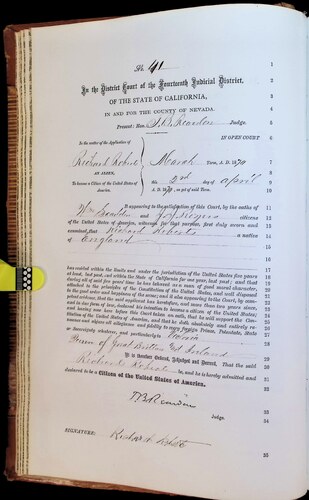 No. 41
In the District Court of the Fourteenth Judicial District,
OF THE STATE OF CALIFORNIA,
IN AND FOR THE COUNTY OF NEVADA.
Present: Hon. T. B. Reardon Judge.
IN OPEN COURT
In the matter of the Application of
Richard Roberts
AN ALIEN,
To become a Citizen of the United States of America.
March Term, A. D. 1870
this 2nd day of April
A. D. 1870, yet of said Term.
It appearing to the satisfaction of this Court, by the oaths of
Wm and citizens
of the United States of America, witnesses for that purpose, first duly sworn and
examined that Richard Roberts a native
of England
has resided within the limits and under the jurisdiction of the United States five years
at least, last past, and within the State of California for one year, last past; and that
during all of said five years' time he has behaved as a man of good moral character,
attached to the principles of the Constitution of the United States, and well disposed
to the good order and happiness of the same; and it also appearing to the Court, by
competent evidence, that the said applicant has heretofore, and more than two years since,
and in due form of law, declared his intention to become a citizen of the United States;
and having now here before this Court taken an oath, that he will support the Constitution
of the United States of America, and that he doth absolutely and entirely renounce
and abjure all allegiance and fidelity to every Foreign Prince, Potentate, State
or Sovereignty whatever, and particularly to Victoria
Queen of Great Britain and Ireland
It is therefore Ordered, Adjudged and Decreed, That the said
Richard Roberts be, and he is hereby admitted and
declared to be a Citizen of the United States of America.
T. B. Reardon
Judge.
SIGNATURE: Richard Roberts
1
2
3
4
5
6
7
8
9
10
11
12
13
14
15
16
17
18
19
20
21
22
23
24
25
26
27
28
29
30
31
32
33
34
35